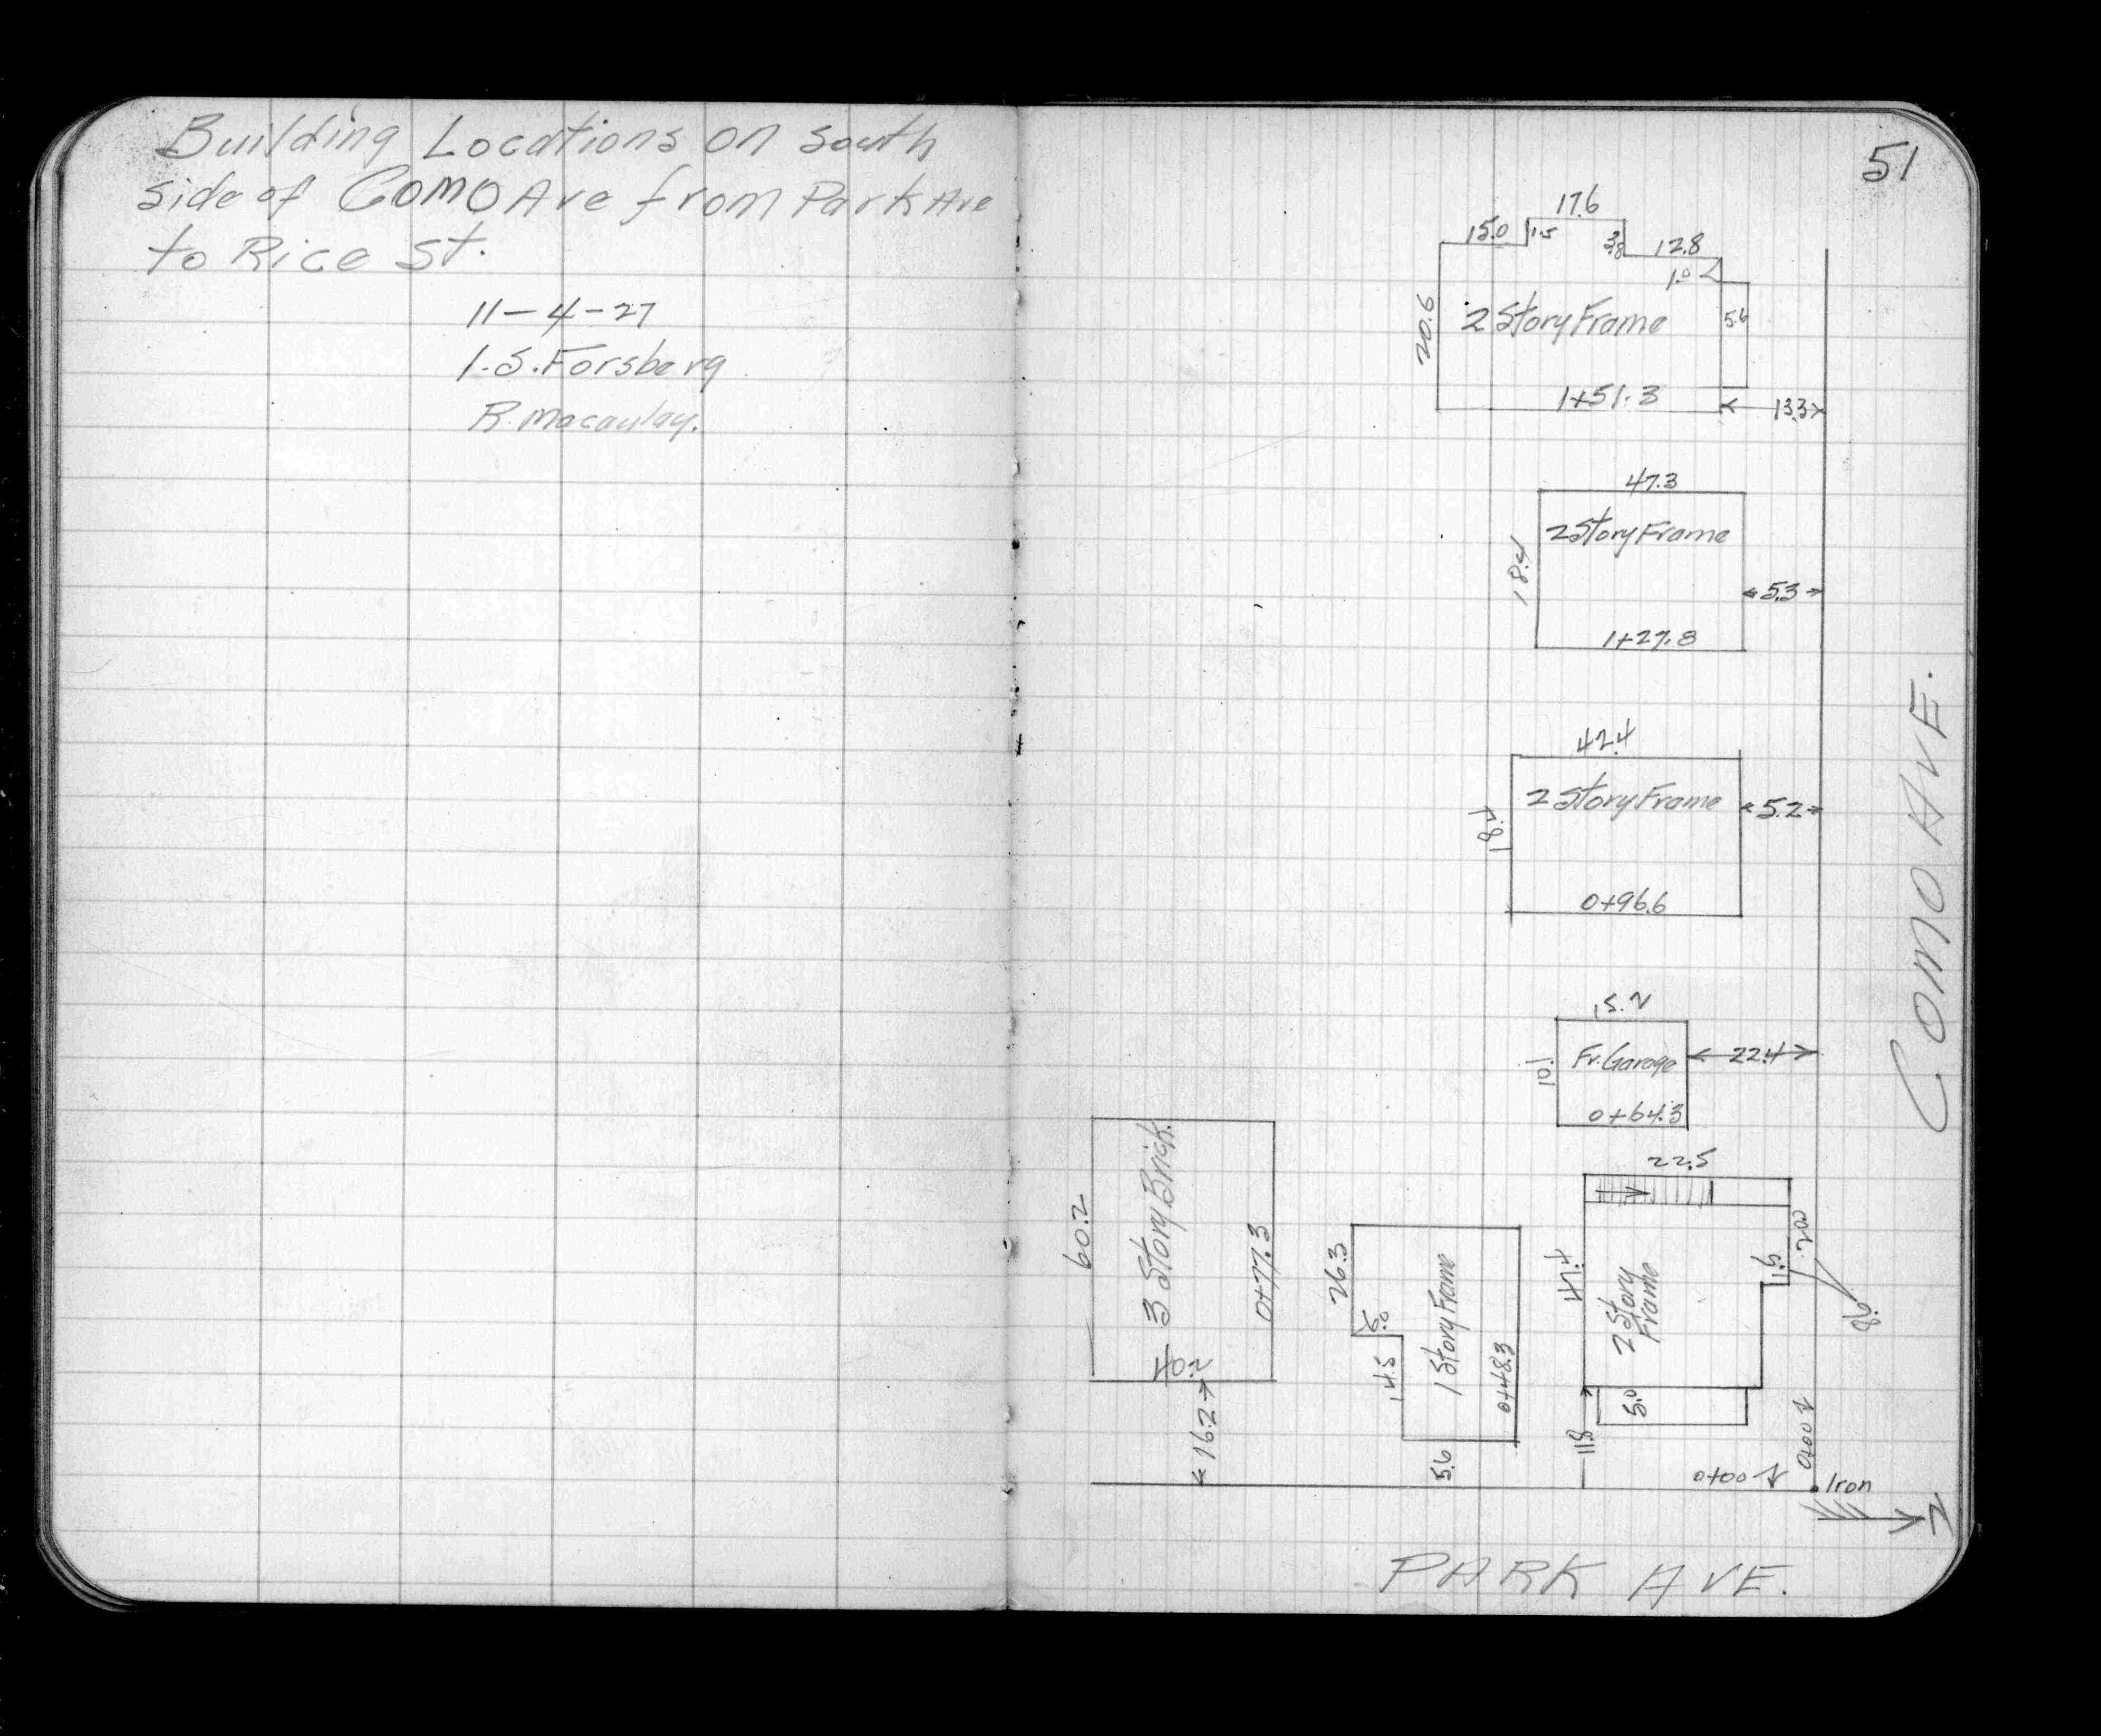 Building Locations on south
side of Como Ave from Park Ave
to Rice St.
11-4-27
I.S. Forsberg
R. Macaulay.
51
17.6
15.0
1.5
3.8
12.8
1.0
20.6
2 Story Frame
5.6
1+51.3
13.3
47.3
2 Story Frame
18.4
5.3
1+27.8
42.4
2 Story Frame
18.4
5.2
0+96.6
COMO AVE.
15.2
10.1
Fr. Garage
22.4
0+64.3
22.5
60.2
3 Story Brick.
0+77.3
40.2
16.2
26.3
6.0
14.5
1 Story Frame
0+48.3
5.6
47.4
2 Story
Frame
20.0
1.5
8.6
5.0
11.8
0+00
0+00
Iron
N
PARK AVE.